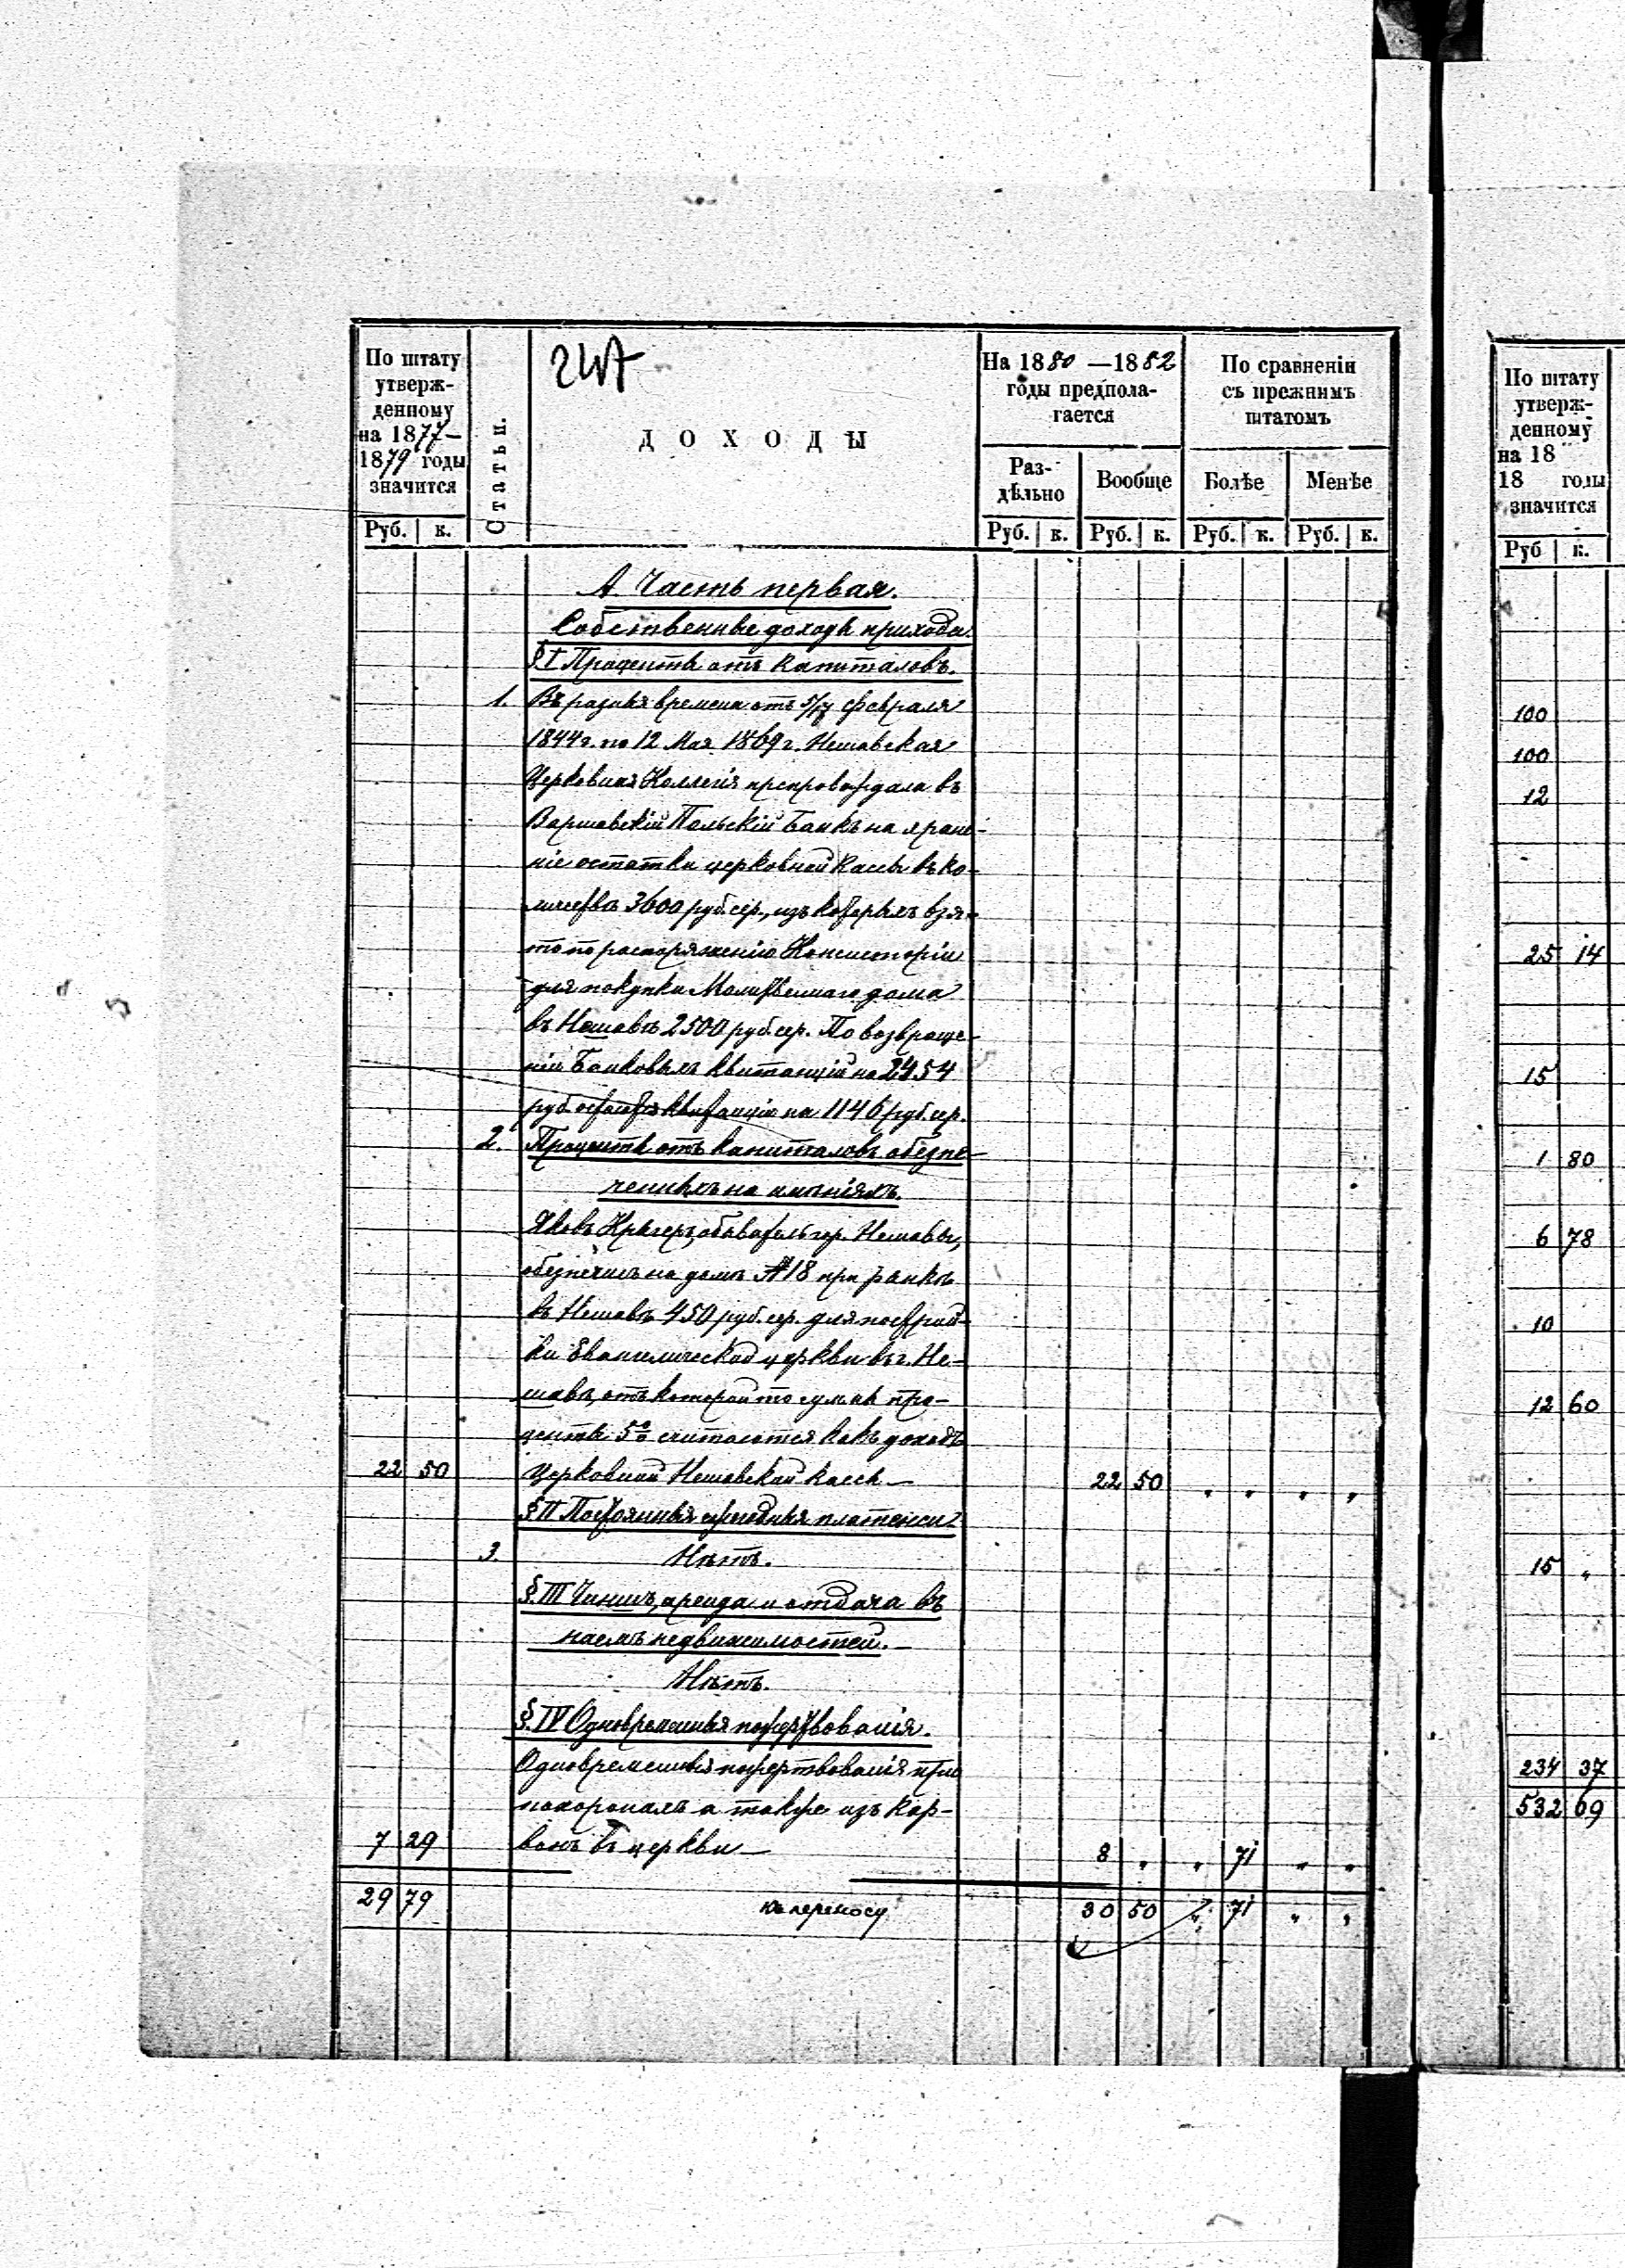 247
По штату
утверж-
денному
на 1877-
1879 годы
значится
Руб. к.
Статьи.
ДОХОДЫ
На 1880 —1882
годы предпола-
гается
Раз-
дѣльно
Вообще
Руб. к. Руб. к.
По сравненіи
съ прежнимъ
штатомъ
Болѣе Менѣе
Руб. к. Руб. к.
А. Часть первая.
Собственные доходы прихода.
§ I Проценты отъ капиталовъ.
1. Въ разныя времена отъ 5/17 Февраля
1844 г. по 12 Мая 1869 г. Нешавская
Церковная Коллегія препровождала въ
Варшавскій Польскій Банкъ на хране-
ніе остатки церковной кассы въ ко-
личествѣ 3600 руб. сер., изъ которыхъ взя-
то по распоряженію Консисторіи
для покупки Молитвеннаго дома
въ Нешавѣ 2500 руб. сер. По возвраще-
ніи Банковыхъ квитанцій на 2454
руб. остается квитанція на 1146 руб. сер.
2. Проценты отъ капиталовъ обезпе-
ченныхъ на имѣніяхъ.
Яковъ Кригеръ, обыватель гор. Нешавы,
обезпечилъ на домѣ № 18 при рынкѣ
въ Нешавѣ 450 руб. сер. для построй-
ки Евангелической церкви въ г. Не-
шавѣ, отъ которой то суммы про-
центы 5% считаются какъ доходъ
22 50 церковной Нешавской кассы — 22 50 „ „ „ „
§ II Постоянныя ежегодныя платежи.
3. Нѣтъ.
§ III Чиншъ, аренда и отдача въ
наемъ недвижимостей. —
Нѣтъ.
§ IV Одновременныя пожертвованія.
Одновременныя пожертвованія при
похоронахъ а также изъ кар-
7 29 вонъ въ церкви — 8 „ „ 71 „ „
29 79 къ переносу 30 50 „ 71 „ „
По штату
утверж-
денному
на 18
18 годы
значится
Руб к.
100
100
12
25 14
15
1 80
6 78
10
12 60
15 „
234 37
532 69